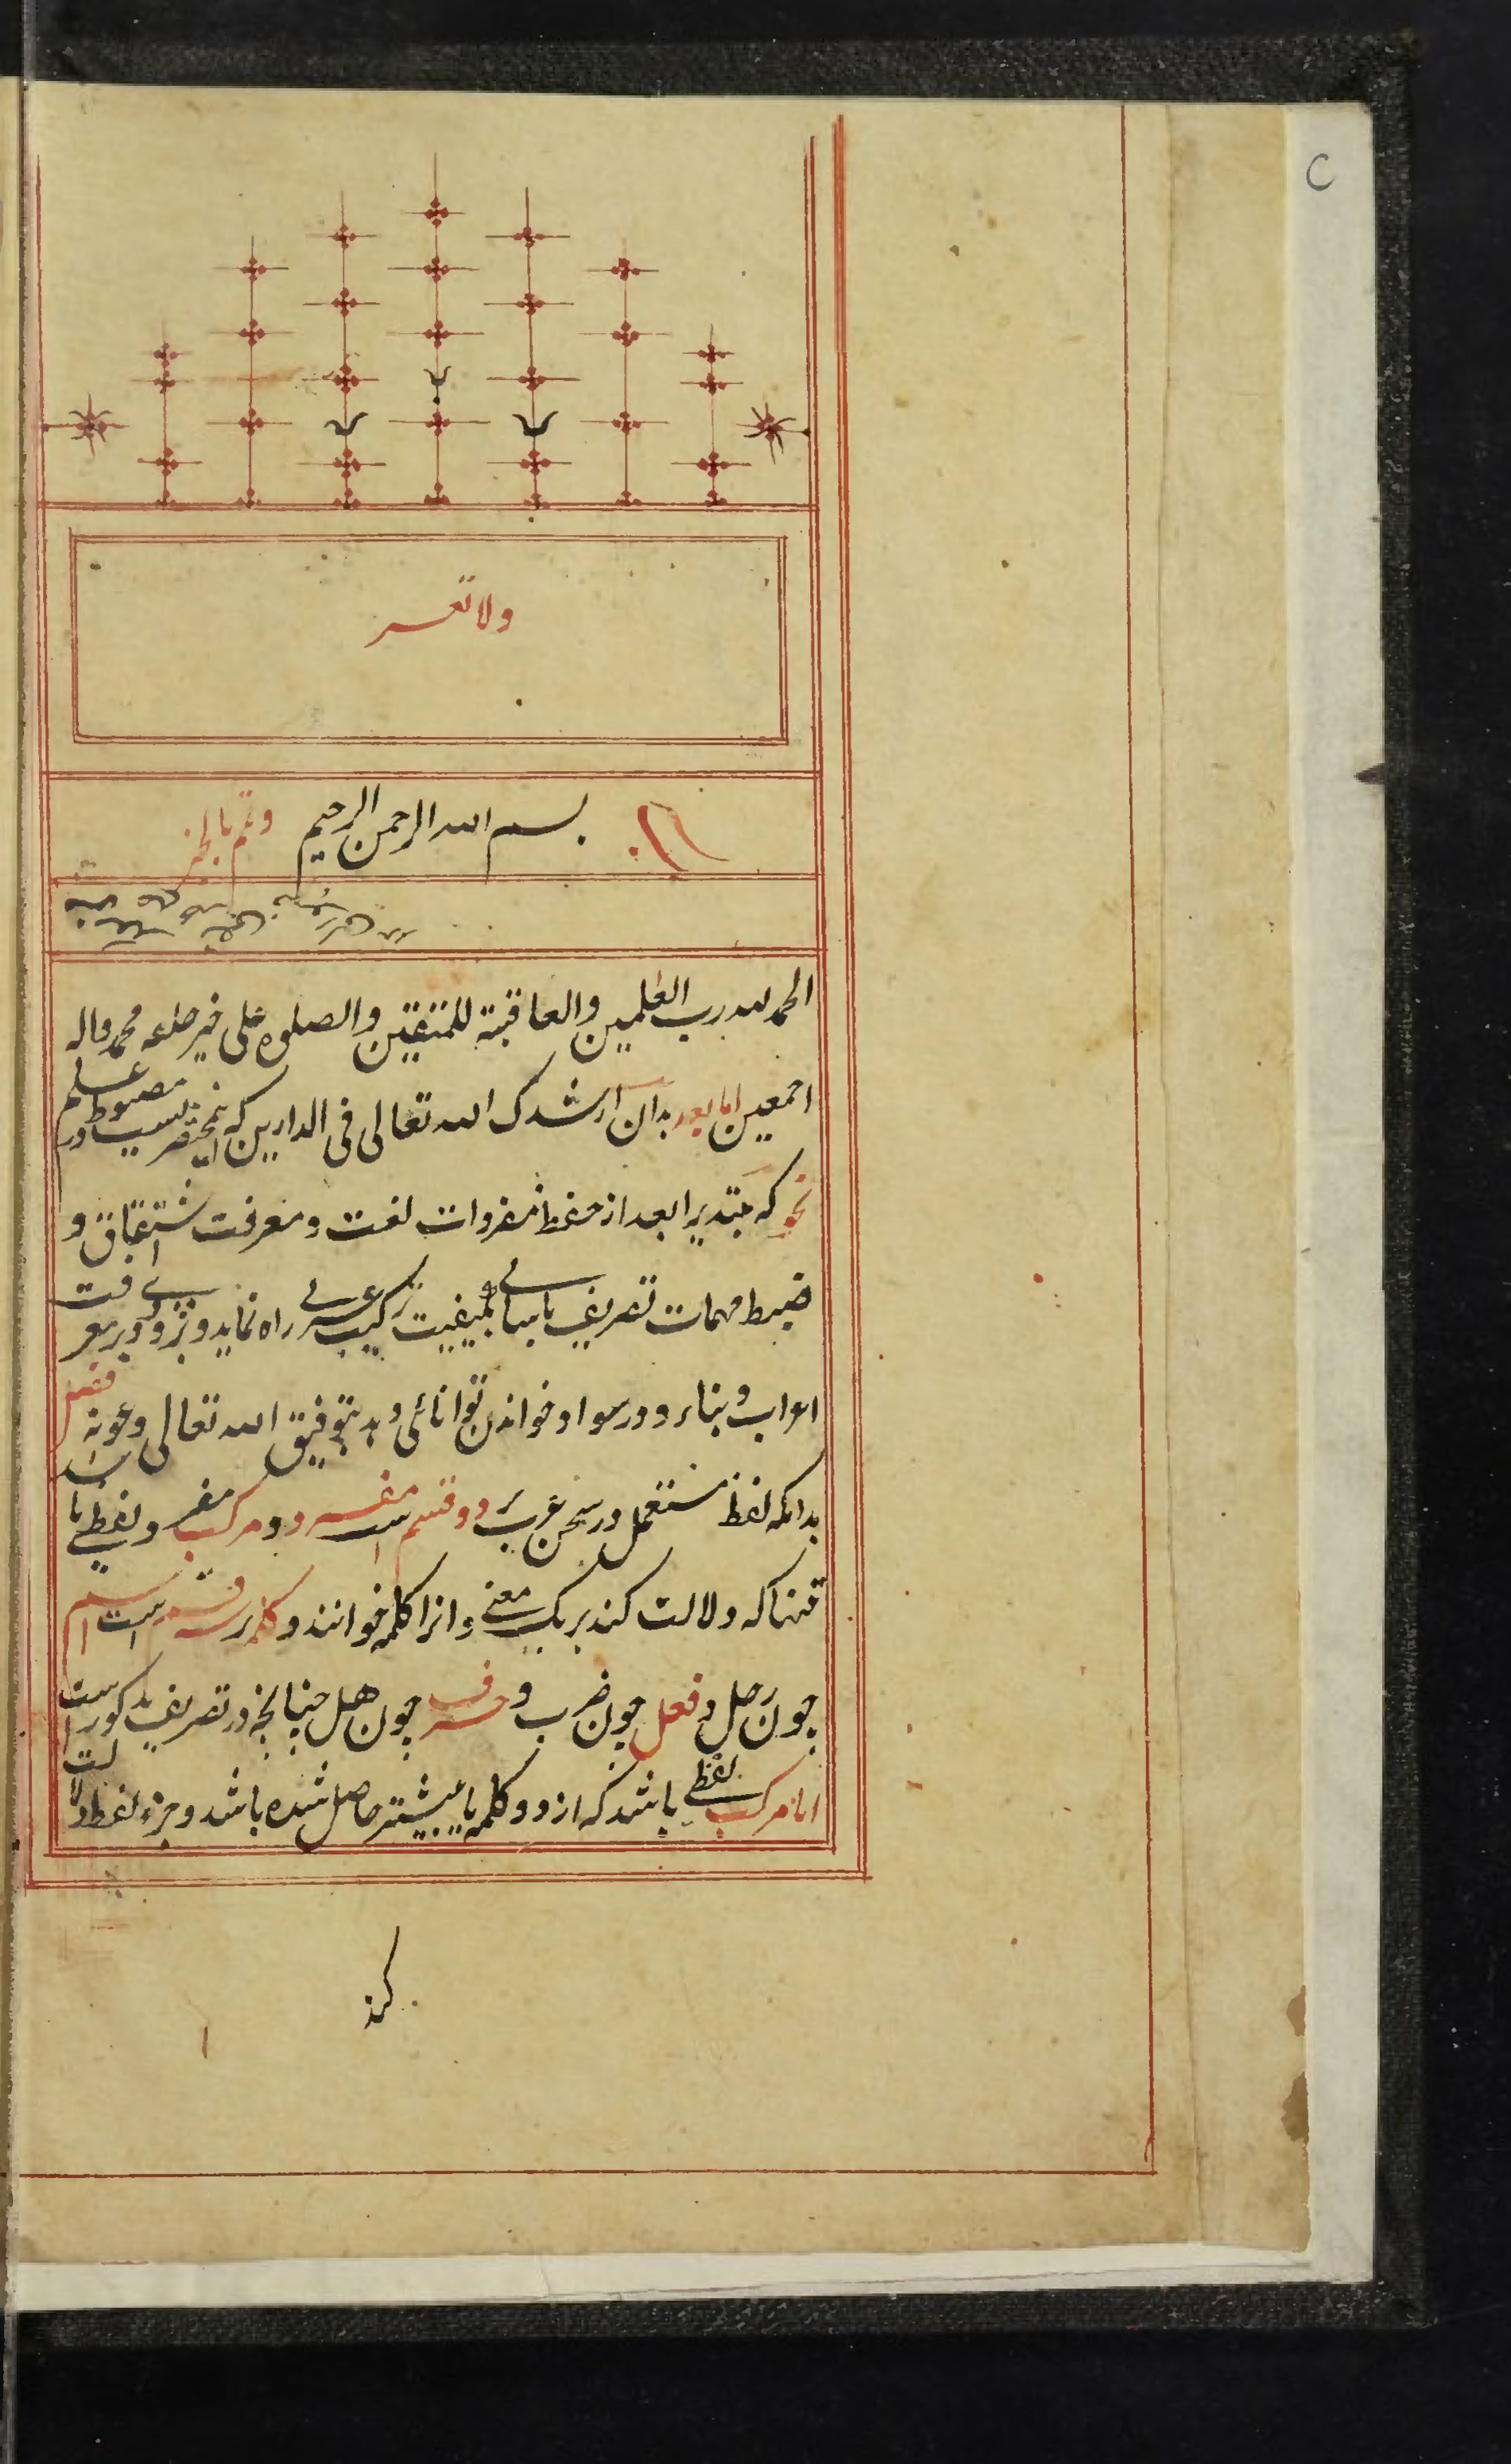 ولا تعسر
رب بسم الله الرحمن الرحیم وتمم بالخیر
الحمد لله رب العلمین والعاقبة للمتقین والصلوه علی خیر خلقه محمد واله
اجمعین اما بعد بدان ارشدک الله تعالی فی الدارین که این مختصریست مضبوط در علم
نحو که مبتدیرا بعد از حفظ مفردات لغت و معرفت اشتقاق و
ضبط مهمات تصریف باسانی بکیفیت ترکیب عربی راه نماید و بزودی در معرفت
اعراب و بناء و در سواد خواندن توانائی دهد بتوفیق الله تعالی وعونه فصل
بدانکه لفظ مستعمل در سخن عرب بر دو قسم است مفرد و مرکب مفرد لفظی باشد
تنها که دلالت کند بر یک معنی و انرا کلمه خوانند و کلمه بر سه قسم است اسم
چون رجل و فعل چون ضرب و حرف چون هل چنانچه در تصریف مذکور است
اما مرکب لفظی باشد که از دو کلمه یا بیشتر حاصل شده باشد و جزء لفظ دلالت
کند